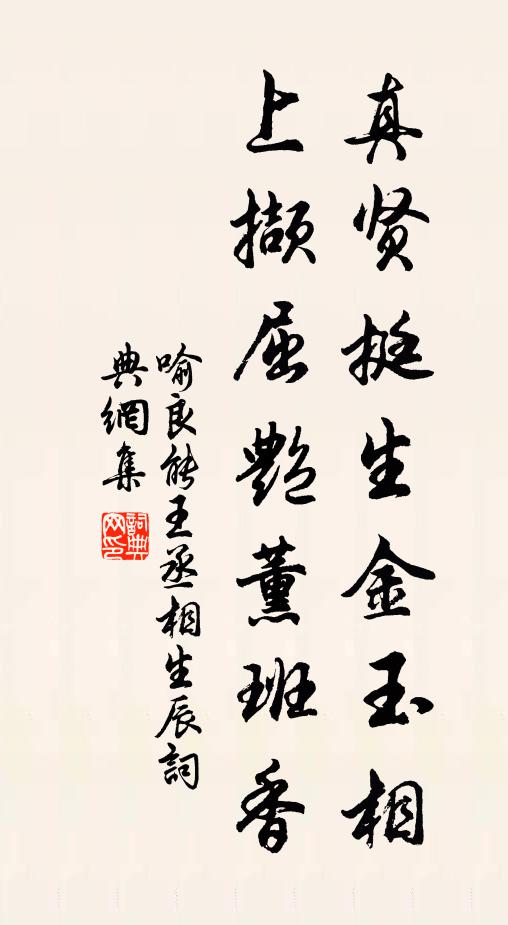 真贤挺生金玉相
上撷屈艶薰班香
喻良能王丞相生辰詞
典網集
詞典
网印